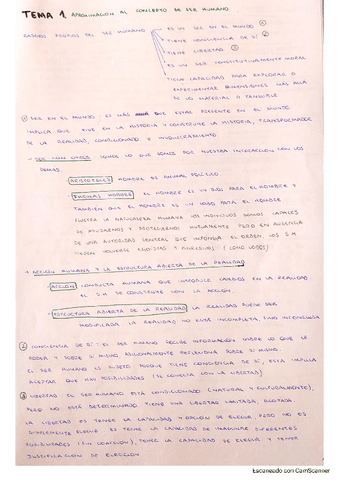 TEMA 1. APROXIMACIÓN AL CONCEPTO DE SER HUMANO
ES UN SER EN EL MUNDO ①
RASGOS PROPIOS DEL SER HUMANO
TIENE CONCIENCIA DE SÍ ②
TIENE LIBERTAD ③
ES UN SER CONSTITUTIVAMENTE MORAL
TIENE CAPACIDAD PARA EXPLORAR O
EXPERIMENTAR DIMENSIONES MÁS ALLÁ
DE LO MATERIAL O TANGIBLE
① SER EN EL MUNDO: ES MÁS QUE ESTAR PRESENTE EN EL MUNDO
IMPLICA QUE VIVE EN LA HISTORIA Y CONSTRUYE LA HISTORIA, TRANSFORMADOR
DE LA REALIDAD, CONDICIONADO E INVOLUCRAMIENTO
- SER CON OTROS SOMOS LO QUE SOMOS POR NUESTRA INTERACCIÓN CON LOS
DEMÁS
ARISTÓTELES HOMBRE ES ANIMAL POLÍTICO
THOMAS HOBBES EL HOMBRE ES UN DIOS PARA EL HOMBRE Y
TAMBIÉN QUE EL HOMBRE ES UN LOBO PARA EL HOMBRE
NUESTRA LA NATURALEZA HUMANA LOS INDIVIDUOS SOMOS CAPACES
DE AYUDARNOS Y PROTEGERNOS MUTUAMENTE PERO EN AUSENCIA
DE UNA AUTORIDAD CENTRAL QUE IMPONGA EL ORDEN, LOS S.H
PUEDEN VOLVERSE EGOÍSTAS Y AGRESIVOS (COMO LOBOS)
- ACCIÓN HUMANA Y LA ESTRUCTURA ABIERTA DE LA REALIDAD
ACCIÓN CONDUCTA HUMANA QUE INTRODUCE CAMBIOS EN LA REALIDAD
EL S.H SE CONSTRUYE CON LA ACCIÓN.
ESTRUCTURA ABIERTA DE LA REALIDAD LA REALIDAD PUEDE SER
MODIFICADA LA REALIDAD NO ESTÁ INCOMPLETA, SINO INCONCLUSA
② CONCIENCIA DE SÍ: EL SER HUMANO RECIBE INFORMACIÓN SOBRE LO QUE LE
RODEA Y SOBRE SÍ MISMO RACIONALMENTE REFLEXIONA SOBRE SÍ MISMO
EL SER HUMANO ES SUJETO PORQUE TIENE CONCIENCIA DE SÍ, ESTA IMPLICA
ACEPTAR QUE HAY POSIBILIDADES (SE CONECTA CON LA LIBERTAD)
③ LIBERTAD EL SER HUMANO ESTÁ CONDICIONADO (NATURAL Y CULTURALMENTE),
PERO NO ESTÁ DETERMINADO TIENE UNA LIBERTAD LIMITADA ACOTADA
LA LIBERTAD ES TENER LA CAPACIDAD Y OPCIÓN DE ELEGIR PERO NO ES
SIMPLEMENTE ELEGIR ES TENER LA CAPACIDAD DE IMAGINAR DIFERENTES
POSIBILIDADES (SIN COACCIÓN), TENER LA CAPACIDAD DE ELEGIR Y TENER
JUSTIFICACIÓN DE ELECCIÓN
Escaneado con CamScanner